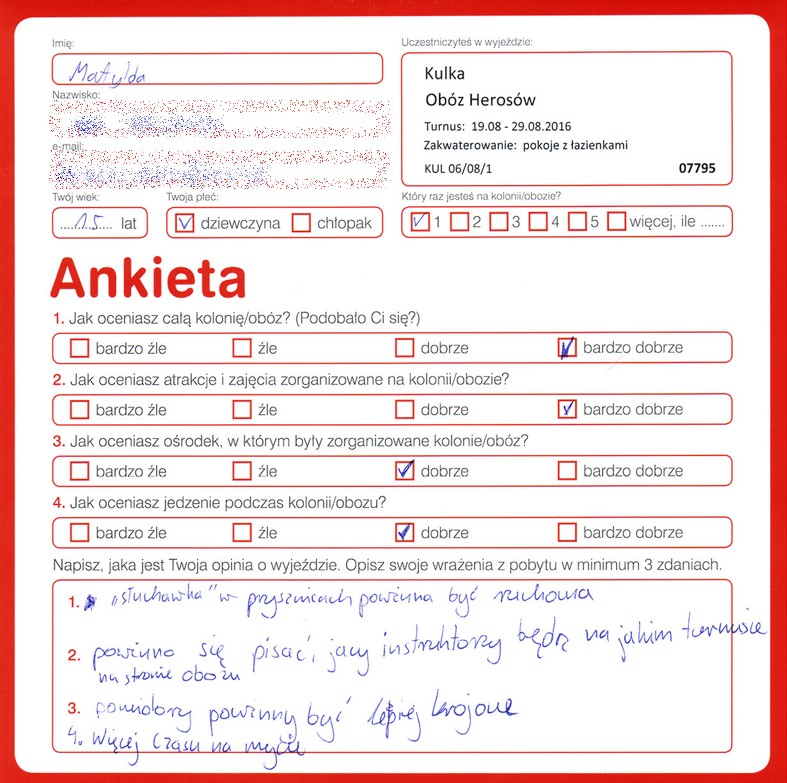 Imię:
Matylda
Nazwisko:
e-mail:
Twój wiek:
....15.... lat
Twoja płeć:
dziewczyna chłopak
Uczestniczyłeś w wyjeździe:
Kulka
Obóz Herosów
Turnus: 19.08 - 29.08.2016
Zakwaterowanie: pokoje z łazienkami
KUL 06/08/1 07795
Który raz jesteś na kolonii/obozie?
1 2 3 4 5 więcej, ile .......
Ankieta
1. Jak oceniasz całą kolonię/obóz? (Podobało Ci się?)
bardzo źle źle dobrze bardzo dobrze
2. Jak oceniasz atrakcje i zajęcia zorganizowane na kolonii/obozie?
bardzo źle źle dobrze bardzo dobrze
3. Jak oceniasz ośrodek, w którym były zorganizowane kolonie/obóz?
bardzo źle źle dobrze bardzo dobrze
4. Jak oceniasz jedzenie podczas kolonii/obozu?
bardzo źle źle dobrze bardzo dobrze
Napisz, jaka jest Twoja opinia o wyjeździe. Opisz swoje wrażenia z pobytu w minimum 3 zdaniach.
1. „słuchawka" w prysznicach powinna być ruchoma
2. powinno się pisać, jacy instruktorzy będą na jakim turnusie
na stronie obozu
3. pomidory powinny być lepiej krojone
4. Więcej czasu na mycie